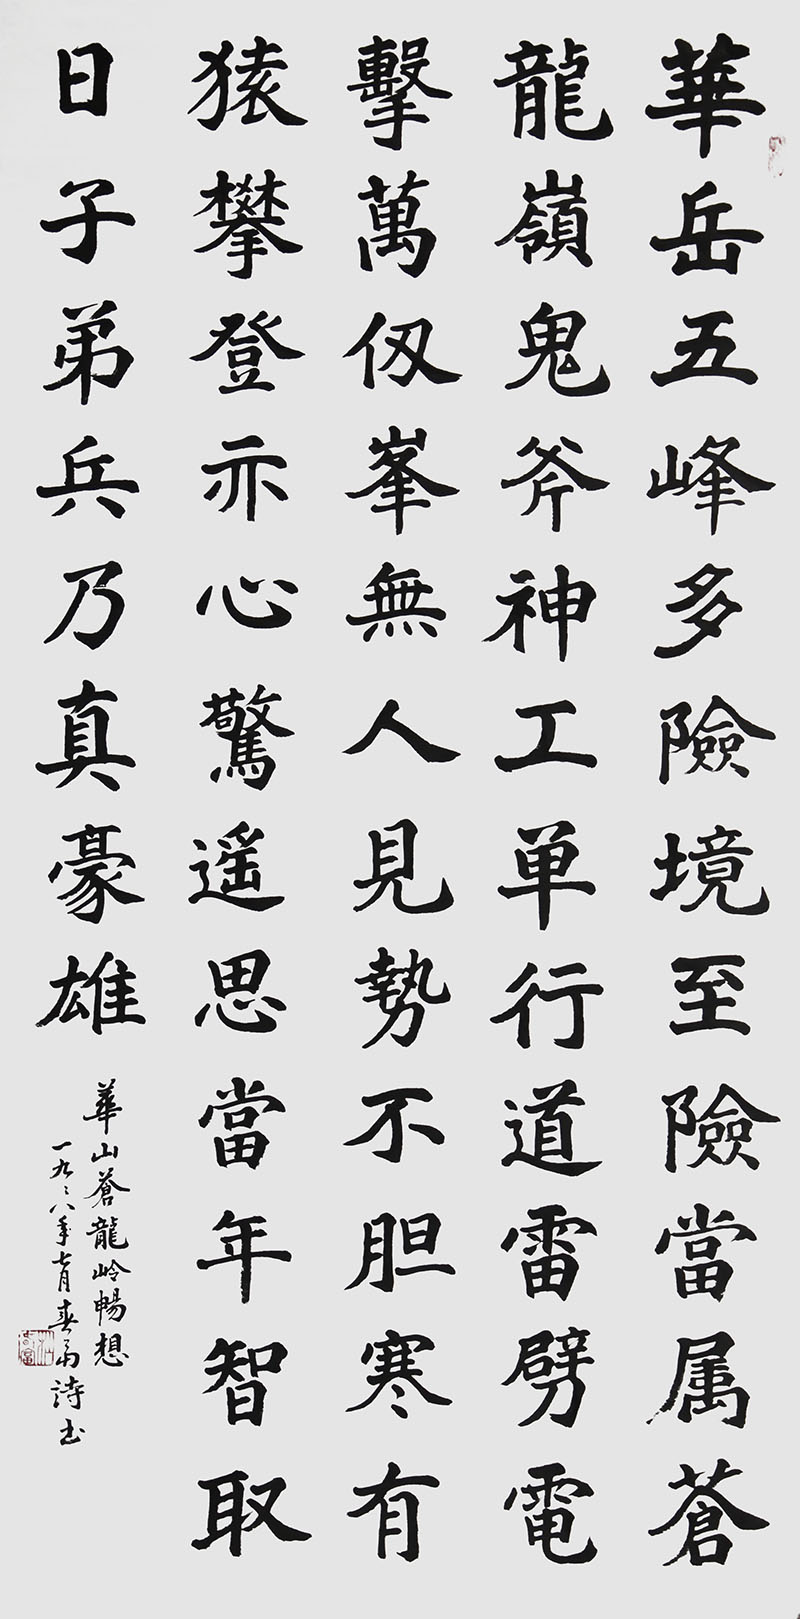 華岳五峰多險境至險當属蒼
龍嶺鬼斧神工单行道雷劈電
擊萬仞峯無人見勢不胆寒有
猿攀登亦心驚遥思當年智取
日子弟兵乃真豪雄
華山蒼龍岭暢想
一九八年七月春
詩书